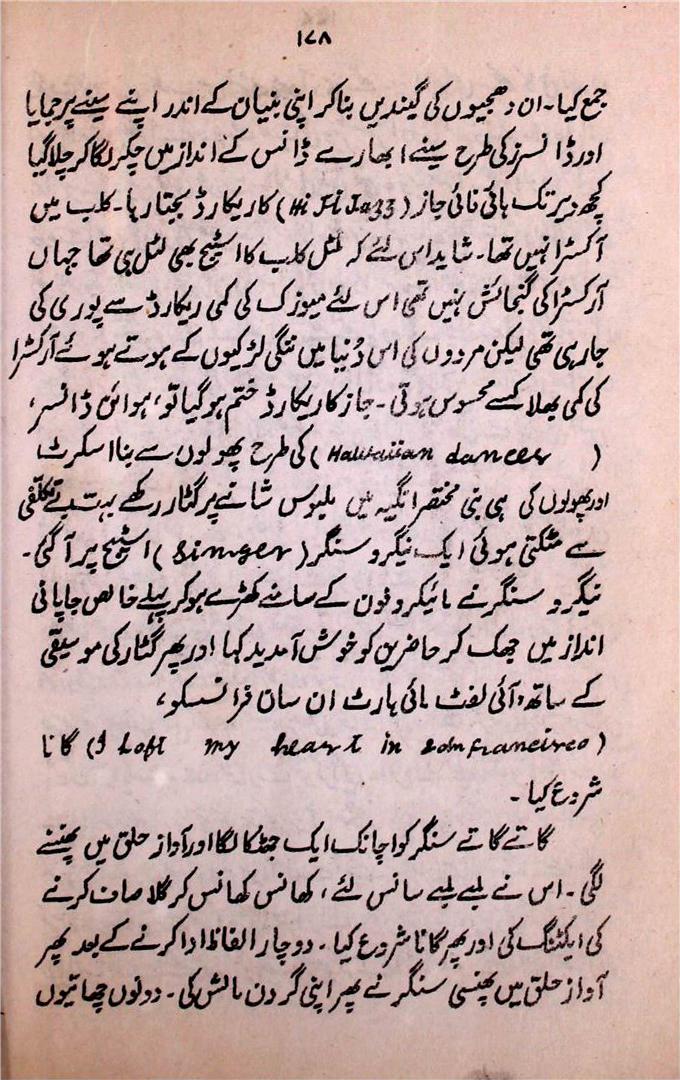 ۱۷۸
جمع کیا۔ ان دھجیوں کی گیندیں بنا کر اپنی بنیان کے اندر اپنے سینے پر جمایا
اور ڈانسرز کی طرح سینے ابھارے ڈانس کے انداز میں چکر لگا کر چلا گیا
کچھ دیر تک ہائی فائی جاز (Hi Fi Jazz) کا ریکارڈ بجتا رہا۔ کلب میں
آکسٹرا نہیں تھا۔ شاید اس لئے کہ لٹل کلب کا اسٹیج بھی لٹل ہی تھا جہاں
آرکسٹرا کی گنجائش نہیں تھی اس لئے میوزک کی کمی ریکارڈ سے پوری کی
جا رہی تھی لیکن مردوں کی اس دُنیا میں ننگی لڑکیوں کے ہوتے ہوئے آرکسٹرا
کی کمی بھلا کسے محسوس ہوتی۔ جاز کا ریکارڈ ختم ہو گیا تو، ہوائن ڈانسر،
(Hawaiian dancer) کی طرح پھولوں سے بنا اسکرٹ
اور پھولوں کی ہی بنی مختصر انگیہ میں ملبوس شانے پر گٹار رکھے بہت بے تکلفی
سے مٹکتی ہوئی ایک نیگرو سنگر (Singer) اسٹیج پر آ گئی۔
نیگرو سنگر نے مائیکروفون کے سامنے کھڑے ہو کر پہلے خالص جاپانی
انداز میں جھک کر حاضرین کو خوش آمدید کہا اور پھر گٹار کی موسیقی
کے ساتھ، آئی لفٹ مائی ہارٹ ان سان فرانسسکو،
(I Left my heart in San Francisco) گانا
شروع کیا۔
گاتے گاتے سنگر کو اچانک ایک جھٹکا لگا اور آواز حلق میں پھنسنے
لگی۔ اس نے لمبے لمبے سانس لئے، کھانس کھانس کر گلا صاف کرنے
کی ایکٹنگ کی اور پھر گانا شروع کیا۔ دو چار الفاظ ادا کرنے کے بعد پھر
آواز حلق میں پھنسی سنگر نے پھر اپنی گردن مالش کی۔ دونوں چھاتیوں